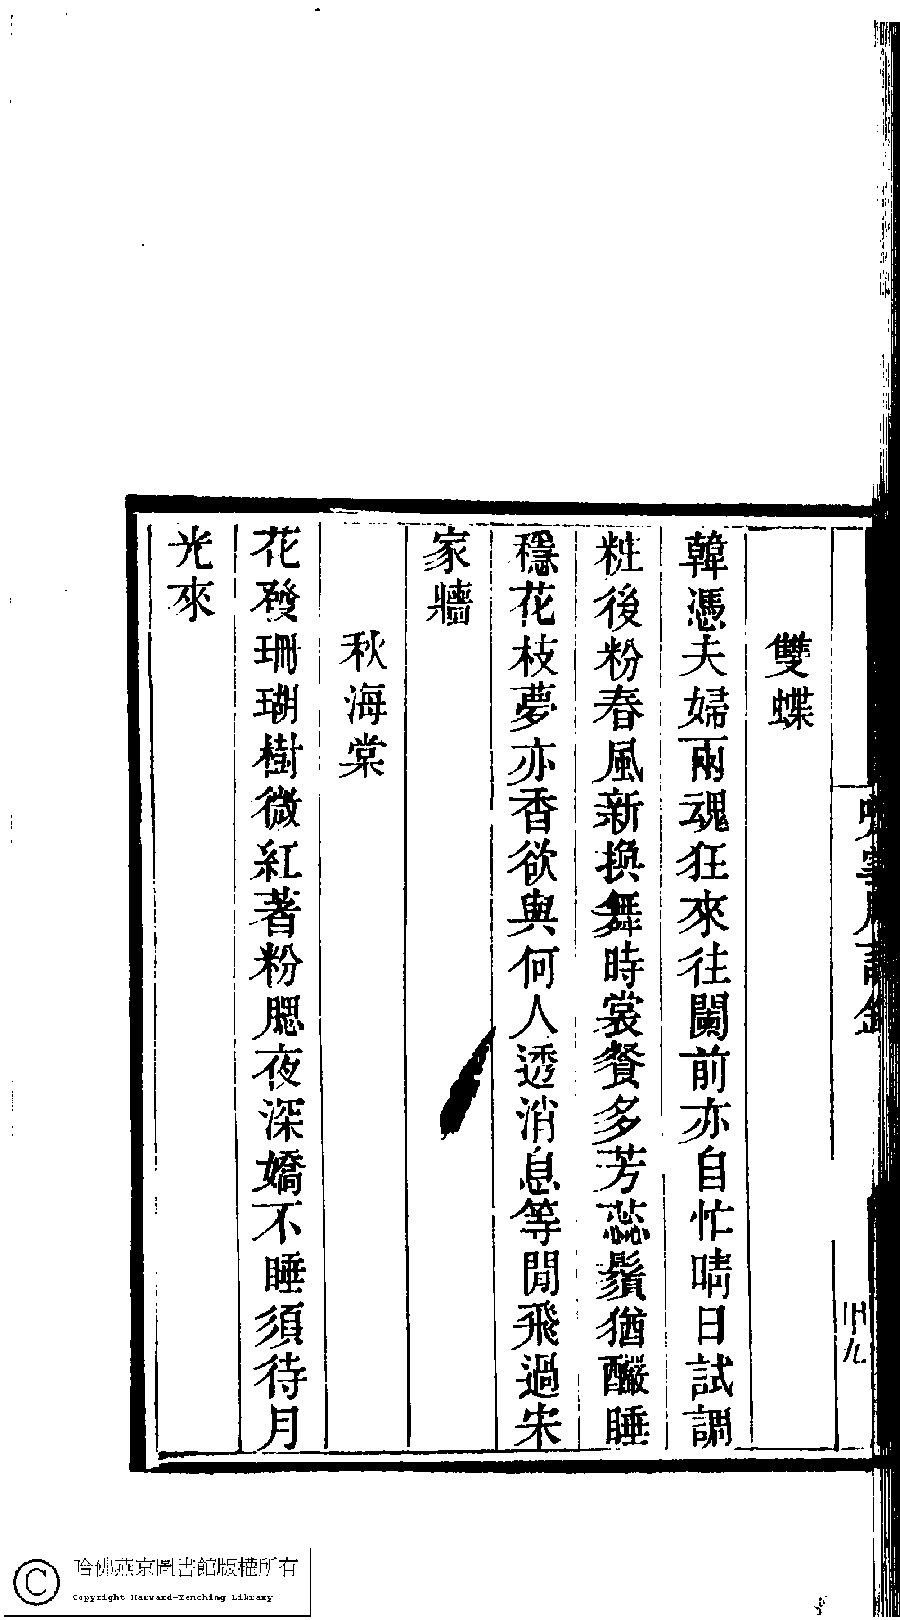 雙蝶
韓憑夫婦兩魂狂來往闌前亦自忙晴日試調
粧後粉春風新換舞時裳餐多芳蕊鬚猶釅睡
穩花枝夢亦香欲與何人透消息等閒飛過宋
家牆
秋海棠
花發珊瑚樹微紅著粉腮夜深嬌不睡須待月
光來
哈佛燕京圖書館版權所有
Copyright Harvard-Yenching Library